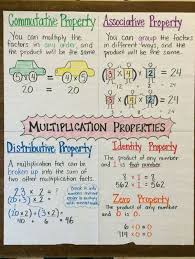 Commutative Property
You can multiply the
factors in any order, and
the product will be the
same.
5 x 4 = 4 x 5
20 20
Associative Property
You can group the factors
in different ways, and the
product will be the same.
3 x 4 x 2 = 24
3 x 4 x 2 = 24
MULTIPLICATION PROPERTIES
Distributive Property
A multiplication fact can be
broken up into the sum of
two other multiplication facts.
23 x 2 = ?
(20 x 2) + (3 x 2)
40 + 6 =
Identity Property
The product of any number
and 1 is that number.
8 x 1 = 8
562 x 1 = 562
Zero Property
The product of any number
and 0 is 0.
6 x 0 = 0